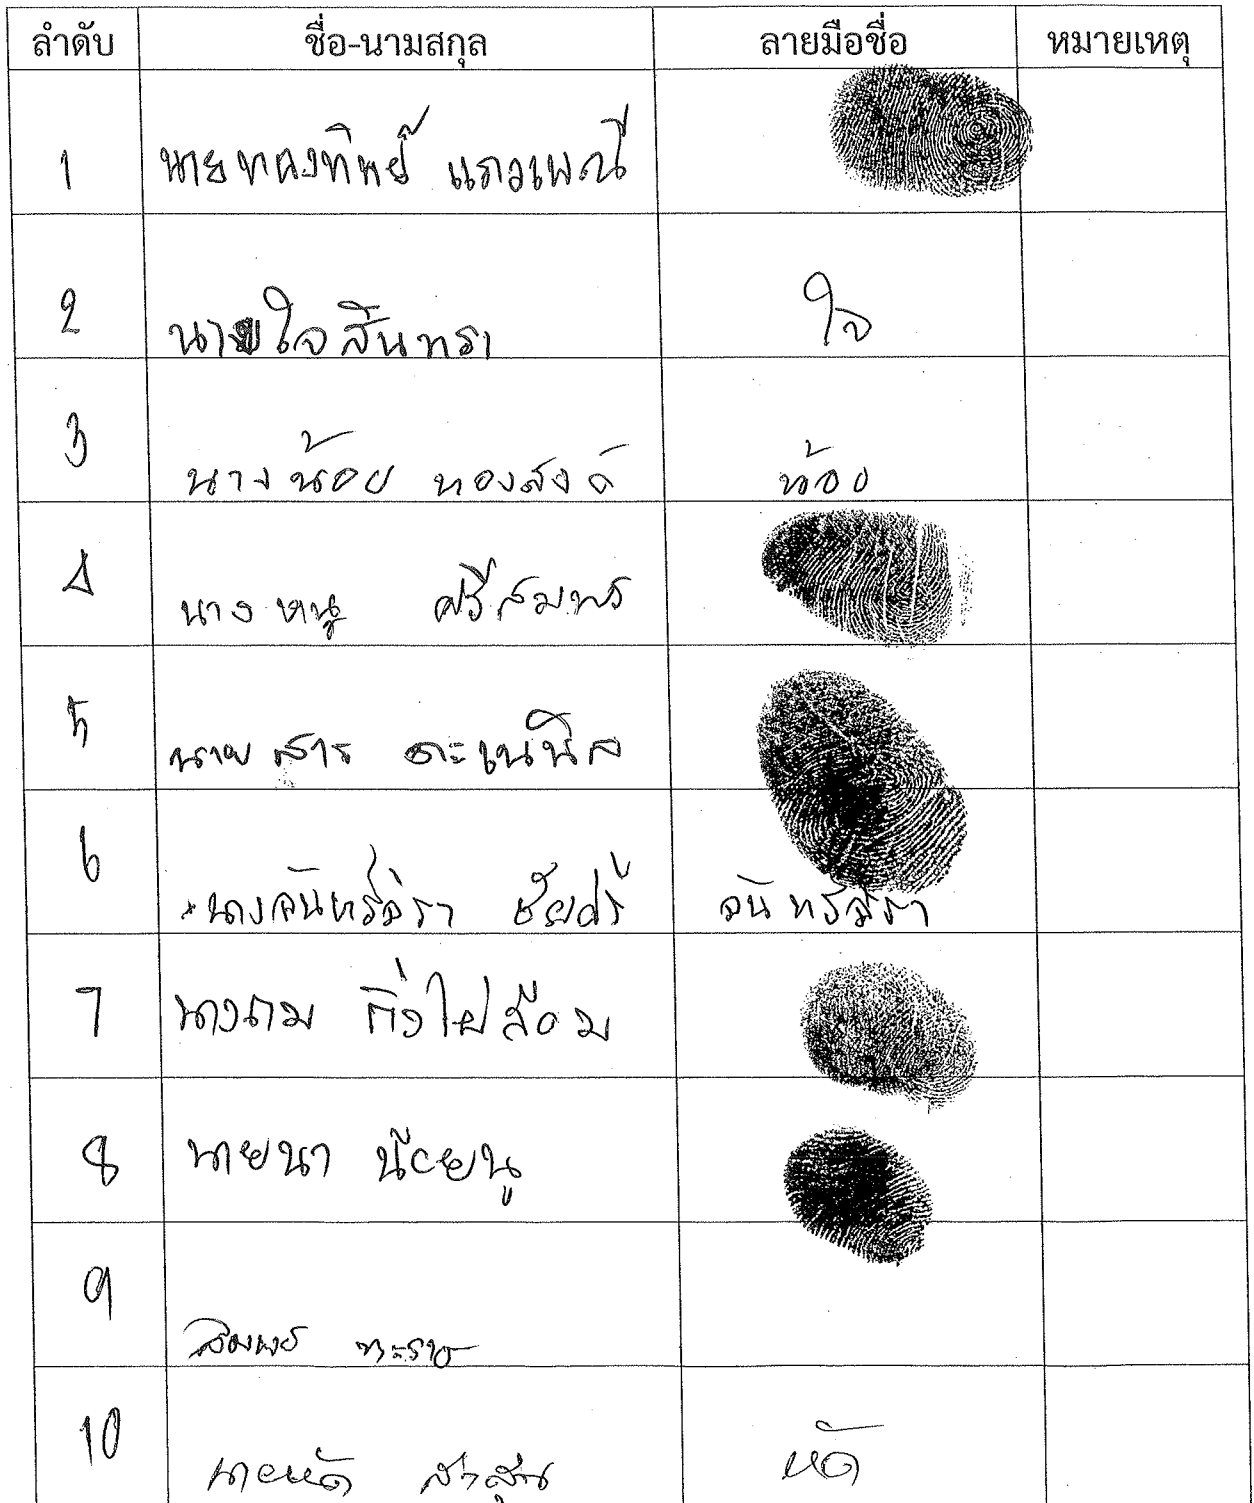 ลำดับ ชื่อ-นามสกุล ลายมือชื่อ หมายเหตุ
1 นายทองทิพย์ แถวเพณี
2 นาย ใจ สินทรา ใจ
3 นาง น้อย ทองสงค์ น้อย
4 นาง หนู ศรีสมพร
5 นาย สาร ตะเนนิล
6 นางจันทร์จิรา ชัยศรี จันทร์จิรา
7 นาง กิ่งไผ่ล้อม
8 นายนา
9
10 นายหัด หัด